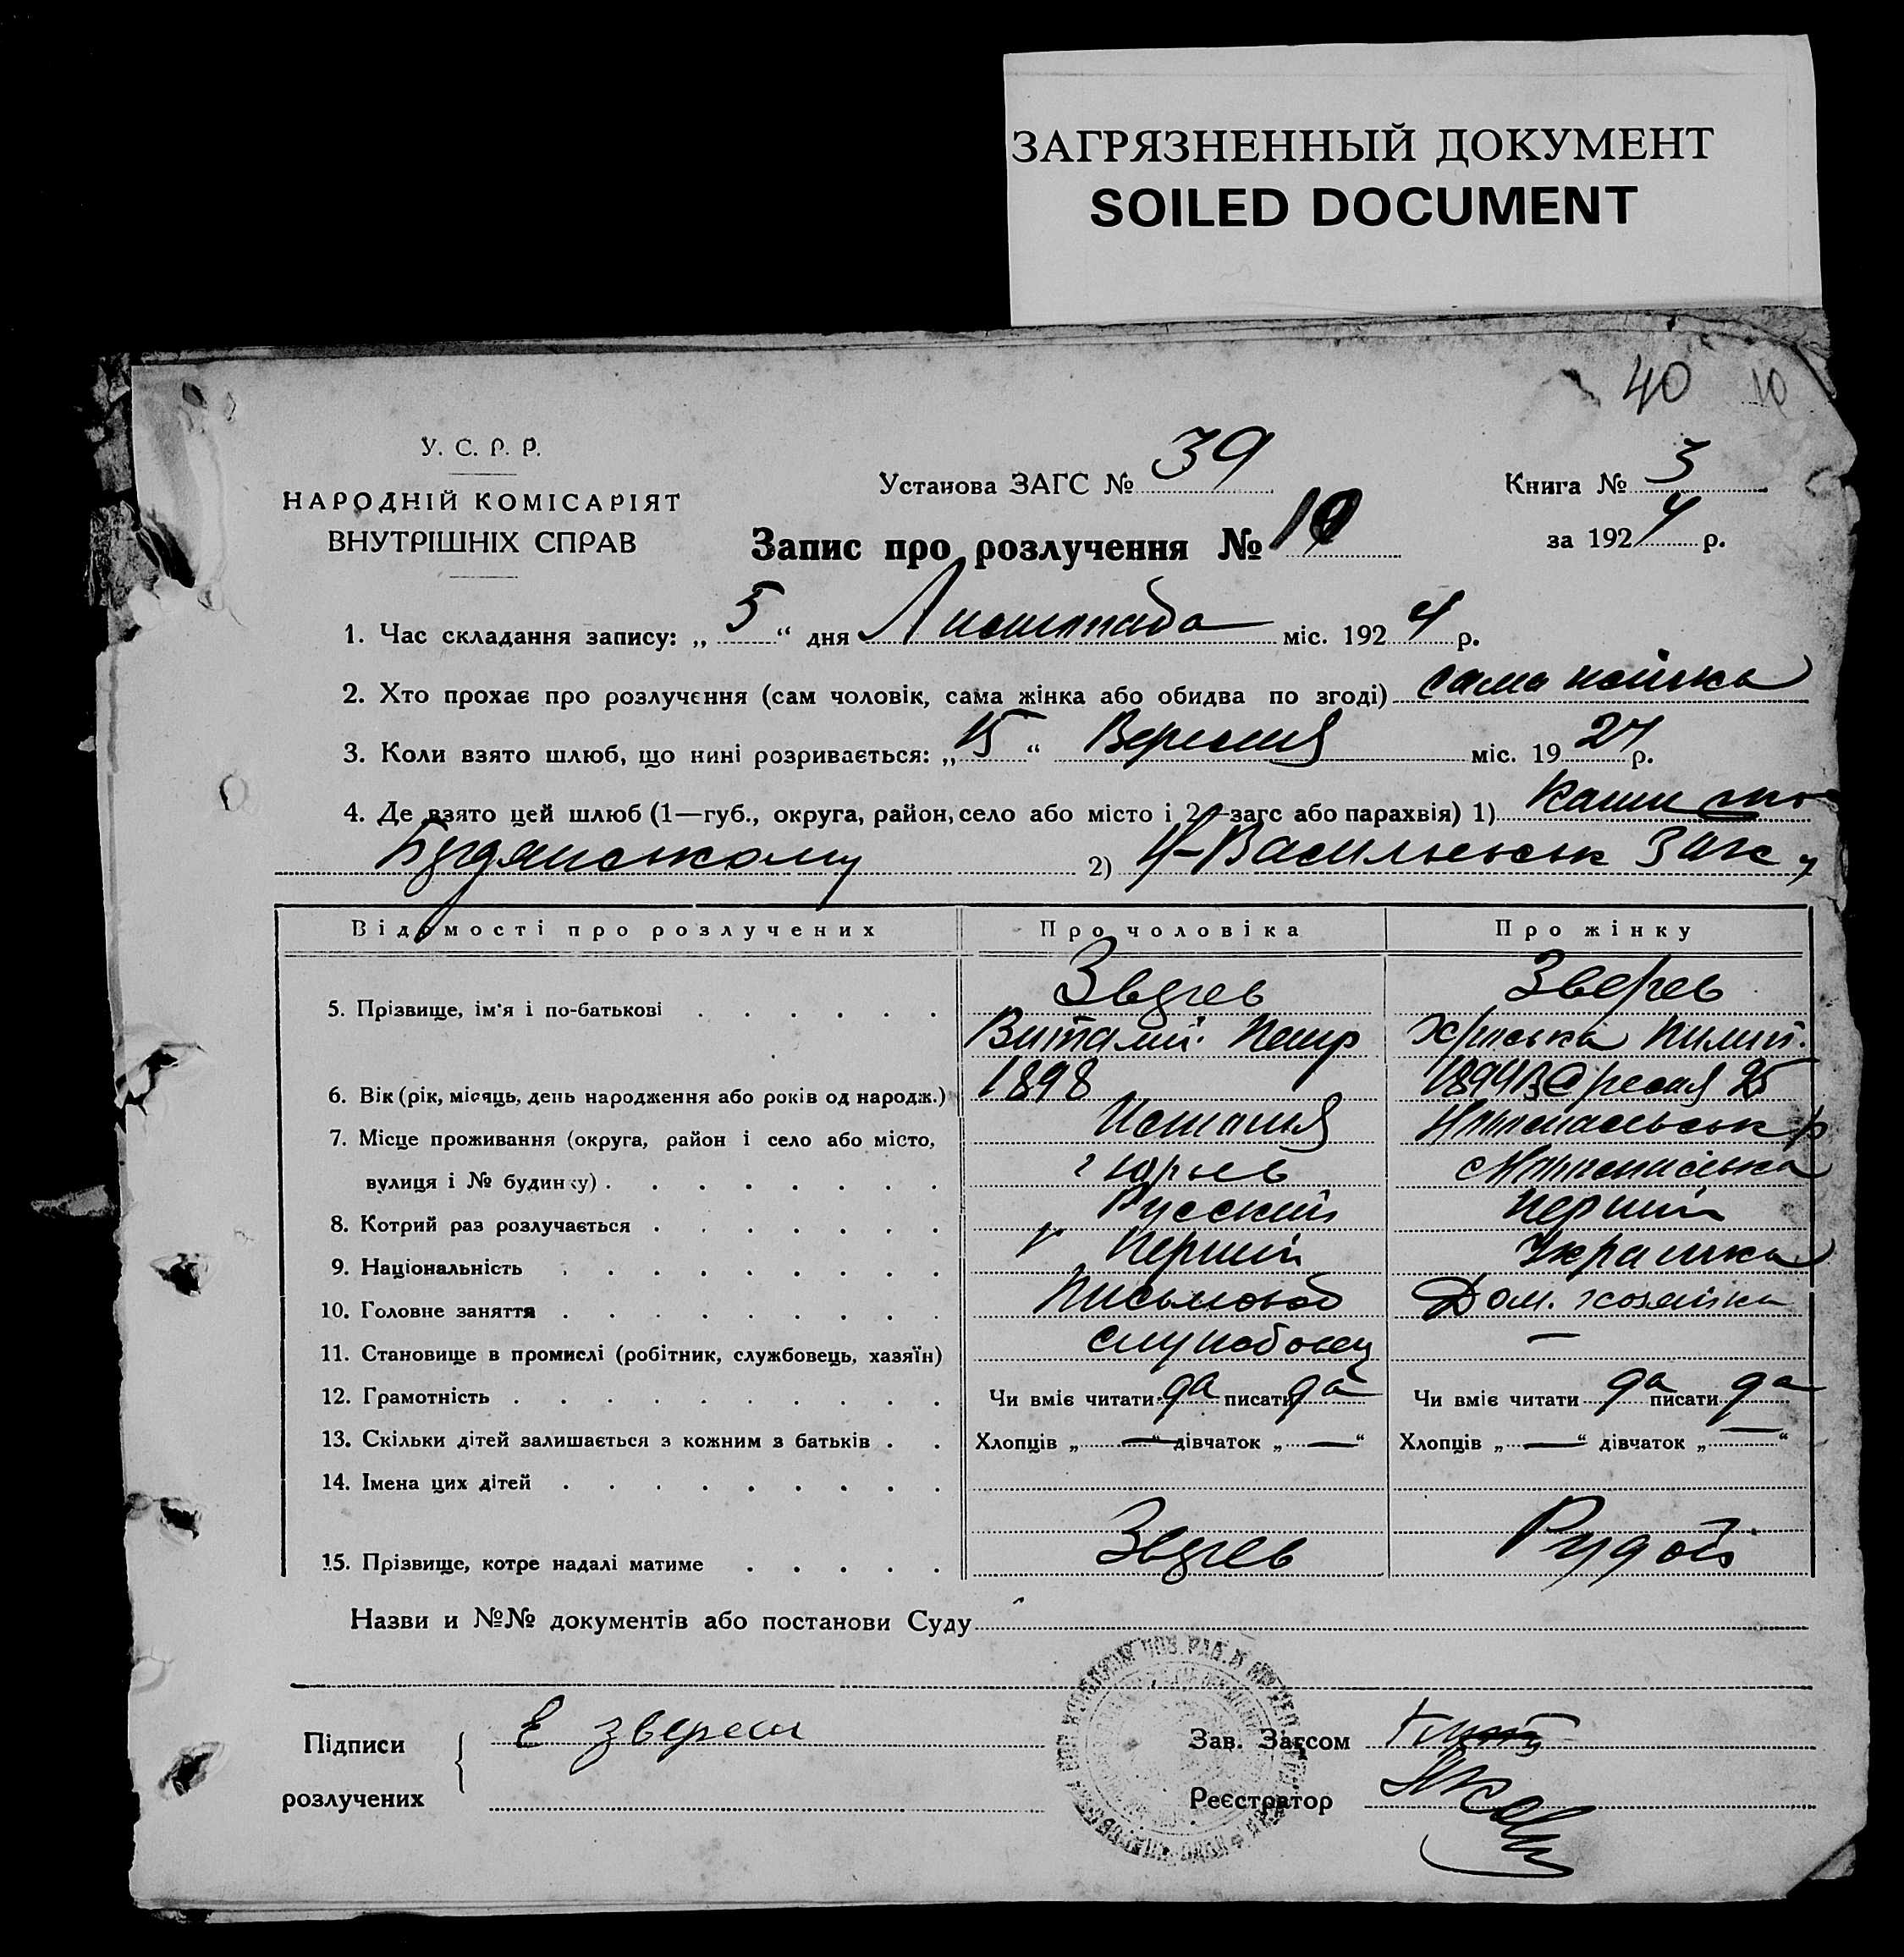 ЗАГРЯЗНЕННЫЙ ДОКУМЕНТ
SOILED DOCUMENT
40 10
У. С. Р. Р.
НАРОДНІЙ КОМІСАРІЯТ
ВНУТРІШНІХ СПРАВ
Установа ЗАГС № 39
Книга № 3
Запис про розлучення № 10
за 1924 р.
1. Час складання запису: „ 5 “ дня Листопада міс. 1924 р.
2. Хто прохає про розлучення (сам чоловік, сама жінка або обидва по згоді) сама жінка
3. Коли взято шлюб, що нині розривається: „ 15 “ Вересня міс. 19 24 р.
4. Де взято цей шлюб (1—губ., округа, район, село або місто і 2—загс або парахвія) 1)
2) Васильевськ Загс
Відомості про розлучених
Про чоловіка
Про жінку
5. Прізвище, ім'я і по-батькові
Зверев
Зверев
Виталий Петр
6. Вік (рік, місяць, день народження або років од народж.)
1898
1894 Вересня 25
7. Місце проживання (округа, район і село або місто,
Естония
вулиця і № будинку)
г Юрьев
8. Котрий раз розлучається
Русский
Перший
9. Національність
Перший
Украинка
10. Головне заняття
Письмовод
Дом. хозяйка
11. Становище в промислі (робітник, службовець, хазяїн)
службовец
—
12. Грамотність
Чи вміє читати да писати да
Чи вміє читати да писати да
13. Скільки дітей залишається з кожним з батьків
Хлопців „ — “ дівчаток „ — “
Хлопців „ — “ дівчаток „ — “
14. Імена цих дітей
15. Прізвище, котре надалі матиме
Зверев
Рудой
Назви и №№ документів або постанови Суду
Підписи
розлучених
Е зверев
Зав. Загсом
Реєстратор